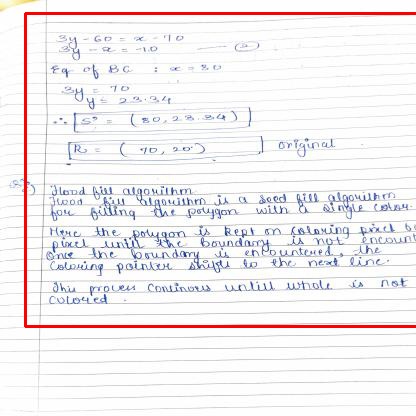 3y - 60 = x - 70
3y - x = -10 ——— (2)
Eq of BC : x = 80
3y = 70
y = 23.34
∴ [S' = (80, 23.34)]
[R = (70, 20)] original
Flood fill algorithm
Flood fill algorithm is a seed fill algorithm
for filling the polygon with a single color.
Here the polygon is kept on coloring pixel by
pixel until the boundary is not encount
Once the boundary is encountered, the
coloring pointer shifts to the next line.
This process continous untill whole is not
colored.